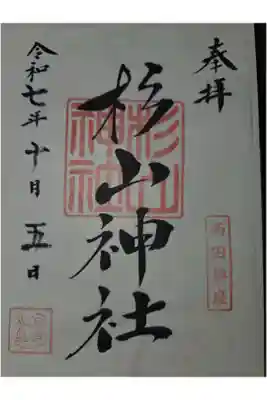 奉拝
杉山神社
杉山神社
令和七年十月五日